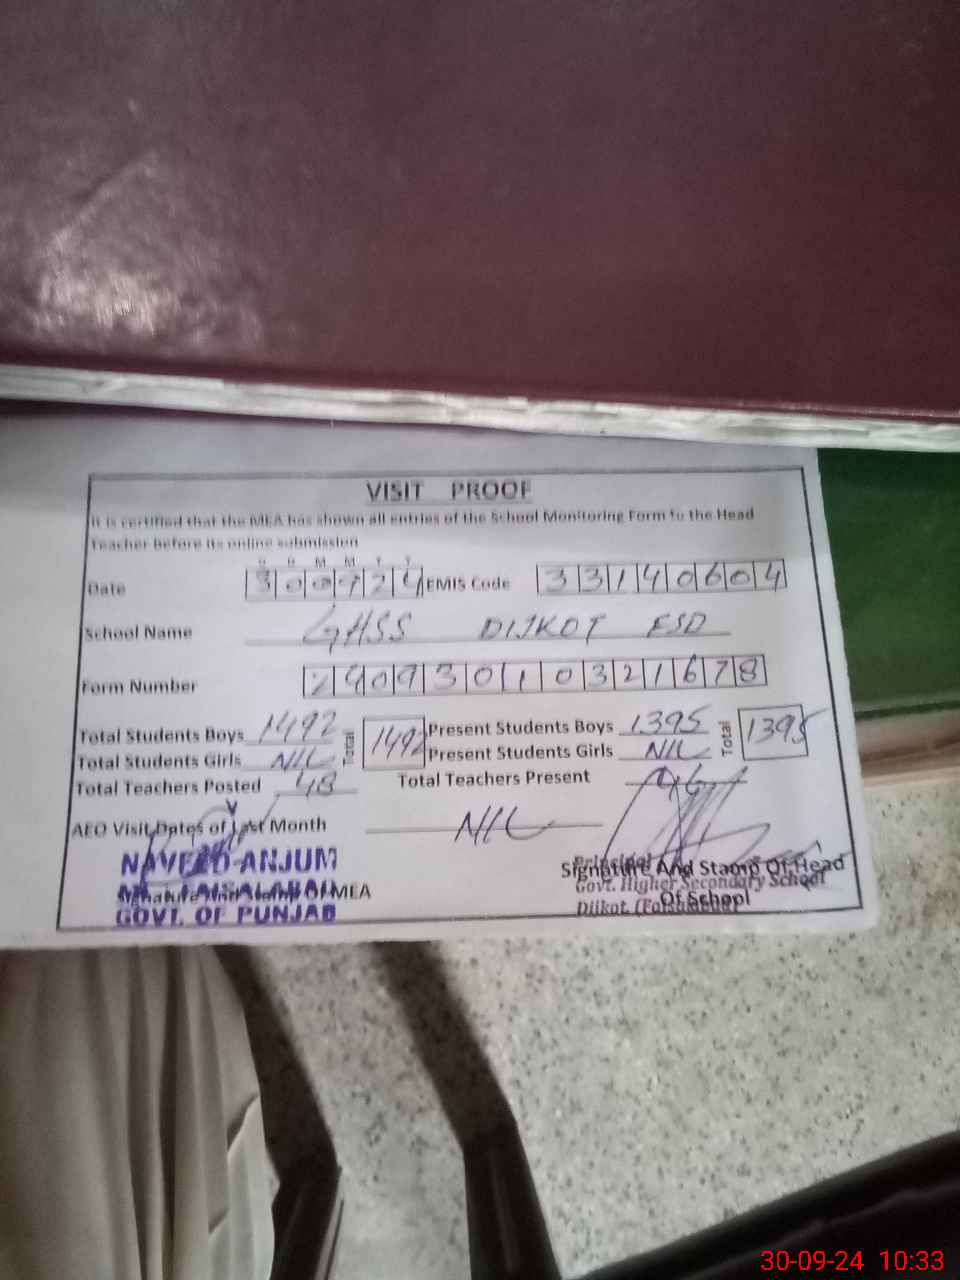 VISIT PROOF
It is certified that the MEA has shown all entries of the School Monitoring Form to the Head
Teacher before its online submission
D D M M Y Y
Date 300924 EMIS Code 33140604
School Name GHSS DIJKOT FSD
Form Number 24093010321678
Total Students Boys 1492 Total 1492 Present Students Boys 1395 Total 1395
Total Students Girls NIL Present Students Girls NIL
Total Teachers Posted 48 Total Teachers Present
AEO Visit Dates of Last Month NIL
NAVEED ANJUM
Signature And Stamp Of MEA
GOVT. OF PUNJAB
Principal
Signature And Stamp Of Head
Govt. Higher Secondary School
Of School
Dijkot (Faisalabad)
30-09-24 10:33